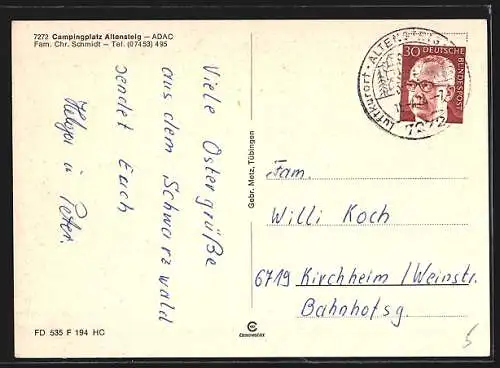 7272 Campingplatz Altensteig – ADAC
Fam. Chr. Schmidt – Tel. (07453) 495
Viele Ostergrüße
aus dem Schwarzwald
sendet Euch
Helga u Peter.
FD 535 F 194 HC
Gebr. Metz, Tübingen
CHROMOLUX
LUFTKURORT · ALTENSTEIG
7272
30 DEUTSCHE
BUNDESPOST
Fam.
Willi Koch
6719 Kirchheim/Weinstr.
Bahnhofsg.
5